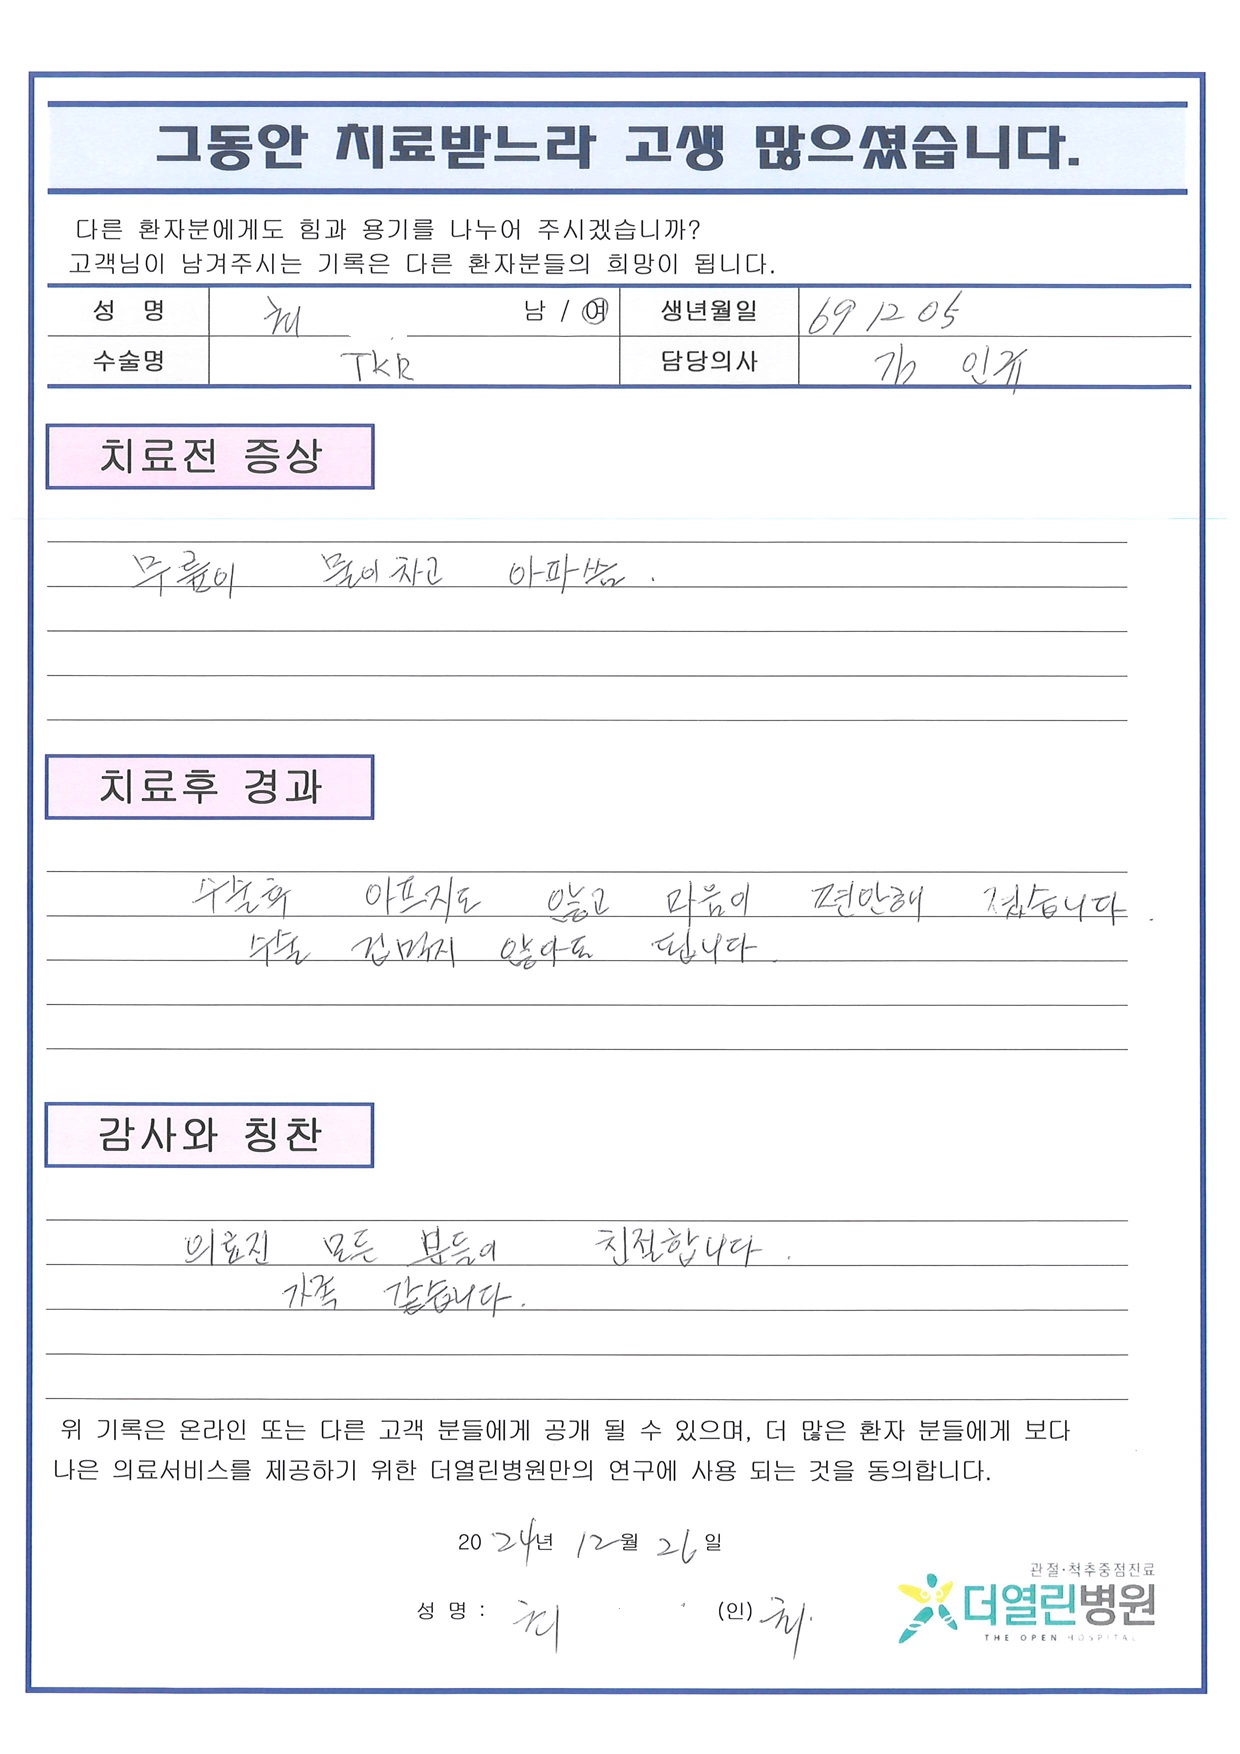 그동안 치료받느라 고생 많으셨습니다.
다른 환자분에게도 힘과 용기를 나누어 주시겠습니까?
고객님이 남겨주시는 기록은 다른 환자분들의 희망이 됩니다.
성 명 최 남 / 여 생년월일 69 12 05
수술명 TKR 담당의사 김 인규
치료전 증상
무릎이 물이차고 아파씀.
치료후 경과
수술후 아프지도 않고 마음이 편안해 졌습니다.
수술 겁먹지 않아도 됩니다.
감사와 칭찬
의료진 모든 분들이 친절합니다.
가족 같습니다.
위 기록은 온라인 또는 다른 고객 분들에게 공개 될 수 있으며, 더 많은 환자 분들에게 보다
나은 의료서비스를 제공하기 위한 더열린병원만의 연구에 사용 되는 것을 동의합니다.
2024년 12월 26일
성 명 : 최 (인) 최
관절·척추중점진료
더열린병원
THE OPEN HOSPITAL